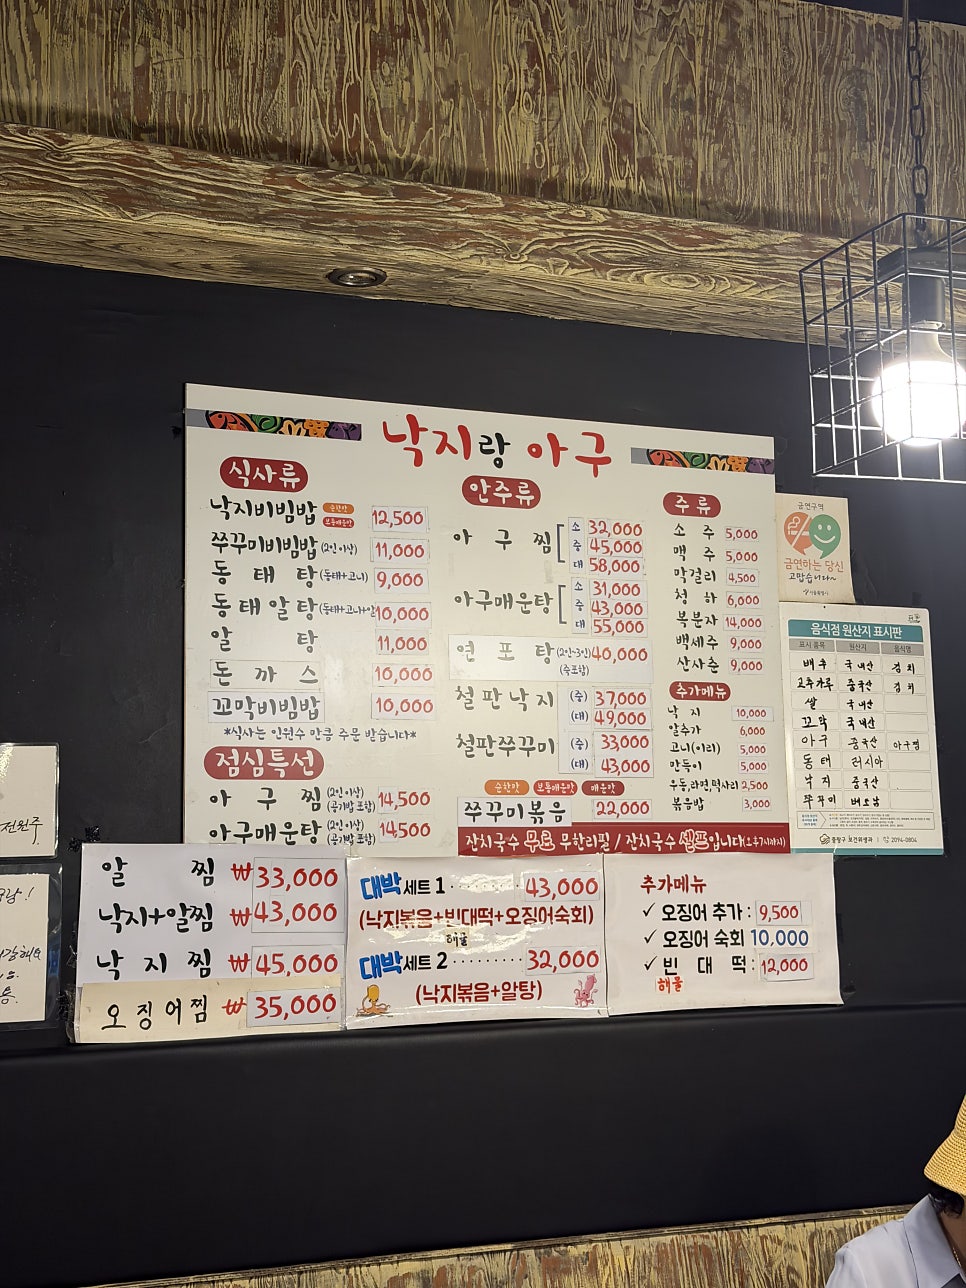 낙지랑 아구
식사류
낙지비빔밥 순한맛 보통매운맛 12,500
쭈꾸미비빔밥(2인 이상) 11,000
동태탕(동태+고니) 9,000
동태알탕(동태+고니+알) 10,000
알탕 11,000
돈까스 10,000
꼬막비빔밥 10,000
*식사는 인원수 만큼 주문 받습니다*
점심특선
아구찜(2인 이상)(공기밥 포함) 14,500
아구매운탕(2인 이상)(공기밥 포함) 14,500
안주류
아구찜
소 32,000
중 45,000
대 58,000
아구매운탕
소 31,000
중 43,000
대 55,000
연포탕(2인~3인)(죽포함) 40,000
철판낙지 (중) 37,000
(대) 49,000
철판쭈꾸미 (중) 33,000
(대) 43,000
순한맛 보통매운맛 매운맛
쭈꾸미볶음 22,000
주류
소주 5,000
맥주 5,000
막걸리 4,500
청하 6,000
복분자 14,000
백세주 9,000
산사춘 9,000
추가메뉴
낙지 10,000
알추가 6,000
고니(이리) 5,000
만득이 5,000
우동,라면,떡사리 2,500
볶음밥 3,000
잔치국수 무료 무한리필 / 잔치국수 셀프입니다(오후7시까지)
알찜 ₩33,000
낙지+알찜 ₩43,000
낙지찜 ₩45,000
오징어찜 ₩35,000
대박세트 1 ········ 43,000
(낙지볶음+빈대떡+오징어숙회)
해물
대박세트 2 ········ 32,000
(낙지볶음+알탕)
추가메뉴
✓ 오징어 추가 : 9,500
✓ 오징어 숙회 10,000
✓ 빈대떡 : 12,000
해물
금연구역
금연하는 당신
고맙습니다~
서울특별시
음식점 원산지 표시판
표시 품목 원산지 음식명
배추 국내산 김치
고추가루 중국산 김치
쌀 국내산
꼬막 국내산
아구 중국산 아구찜
동태 러시아
낙지 중국산
쭈꾸미 베트남
중랑구 보건위생과 | 2094-0804
전원주